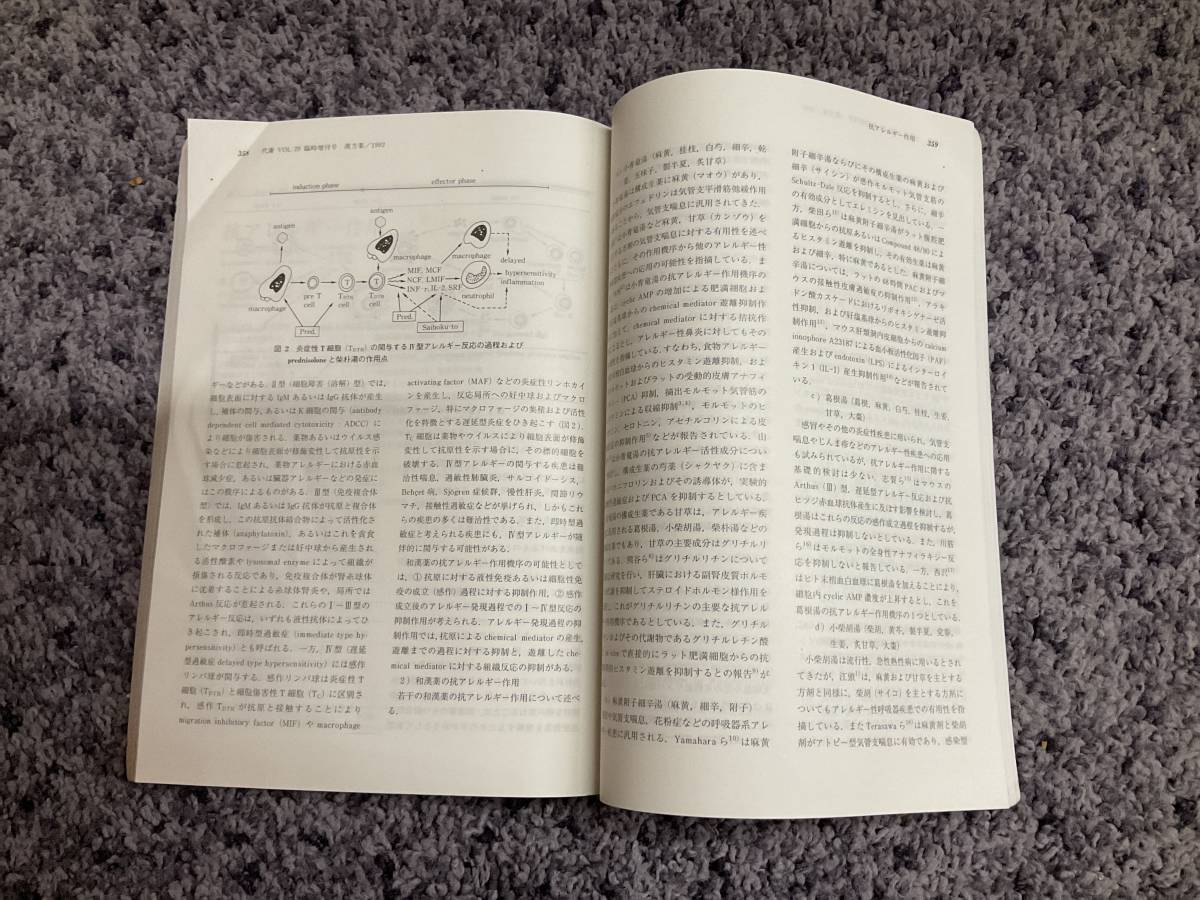 358 代謝 VOL.29 臨時増刊号 漢方薬/1992
induction phase
effector phase
antigen
antigen
macrophage
pre T
cell
T
TDTH
cell
T
TDTH
cell
macrophage
MIF, MCF
NCF, LMIF
INF-γ, IL-2, SRF
macrophage
neutrophil
delayed
hypersensitivity
inflammation
Pred.
Pred.
Saiboku-to
図2 炎症性T細胞(TDTH)の関与するⅣ型アレルギー反応の過程および
prednisoloneと柴朴湯の作用点
ギーなどがある.Ⅱ型(細胞障害(溶解)型)では,
細胞表面に対するIgMあるいはIgG抗体が産生
し,補体の関与,あるいはK細胞の関与(antibody
dependent cell mediated cytotoxicity:ADCC)に
より細胞が傷害される.薬物あるいはウイルス感
染などにより細胞表面が修飾変性して抗原性を示
す場合に惹起され,薬物アレルギーにおける赤血
球減少症,あるいは臓器アレルギーなどの発症に
はこの機序によるものがある.Ⅲ型(免疫複合体
型)では,IgMあるいはIgG抗体が抗原と複合体
を形成し,この抗原抗体結合物によって活性化さ
れた補体(anaphylatoxin),あるいはこれを貪食
したマクロファージまたは好中球から産生され
る活性酸素やlysosomal enzymeによって組織が
損傷される反応であり,免疫複合体が腎糸球体
に沈着することによる糸球体腎炎や,局所では
Arthus反応が惹起される.これらのⅠ−Ⅲ型の
アレルギー反応は,いずれも液性抗体によってひ
き起こされ,即時型過敏症(immediate type hy-
persensitivity)とも呼ばれる.一方,Ⅳ型(遅延
型過敏症delayed type hypersensitivity)には感作
リンパ球が関与する.感作リンパ球は炎症性T
細胞(TDTH)と細胞傷害性T細胞(TC)に区別さ
れ,感作TDTHが抗原と接触することにより
migration inhibitory factor(MIF)やmacrophage
activating factor(MAF)などの炎症性リンホカイ
ンを産生し,反応局所への好中球およびマクロ
ファージ,特にマクロファージの集積および活性
化を特徴とする遅延型炎症をひき起こす(図2).
TC細胞は薬物やウイルスにより細胞表面が修飾
変性して抗原性を示す場合に,その標的細胞を
破壊する.Ⅳ型アレルギーの関与する疾患は難
治性喘息,過敏性肺臓炎,サルコイドーシス,
Behçet病,Sjögren症候群,慢性肝炎,関節リウ
マチ,接触性過敏症などが挙げられ,しかもこれ
らの疾患の多くは難治性である.また,即時型過
敏症と考えられる疾患にも,Ⅳ型アレルギーが随
伴的に関与する可能性がある.
和漢薬の抗アレルギー作用機序の可能性として
は,①抗原に対する液性免疫あるいは細胞性免
疫の成立(感作)過程に対する抑制作用,②感作
成立後のアレルギー発現過程でのⅠ−Ⅳ型反応の
抑制作用が考えられる.アレルギー発現過程の抑
制作用では,抗原によるchemical mediatorの産生,
遊離までの過程に対する抑制と,遊離したche-
mical mediatorに対する組織反応の抑制がある.
2)和漢薬の抗アレルギー作用
若干の和漢薬の抗アレルギー作用について述べ
る.
抗アレルギー作用 359
小青竜湯(麻黄,桂枝,白芍,細辛,乾
五味子,製半夏,炙甘草)
は構成生薬に麻黄(マオウ)があり,
エフェドリンは気管支平滑筋弛緩作用
ことから,気管支喘息に汎用されてきた.
は小青竜湯など麻黄,甘草(カンゾウ)を
の気管支喘息に対する有用性を述べ
その作用機序から他のアレルギー性
疾患への応用の可能性を指摘している.ま
は小青竜湯の抗アレルギー作用機序の
cyclic AMPの増加による肥満細胞およ
からのchemical mediator遊離抑制作
chemical mediatorに対する拮抗作
アレルギー性鼻炎に対してもその
指摘している.すなわち,食物アレルギー
白血球からのヒスタミン遊離抑制,およ
およびラットの受動的皮膚アナフィ
(PCA)抑制,摘出モルモット気管筋の
による収縮抑制,モルモットのヒ
セロトニン,アセチルコリンによる皮
抑制作用などが報告されている.山
は小青竜湯の抗アレルギー活性成分につい
構成生薬の芍薬(シャクヤク)に含ま
ニフロリンおよびその誘導体が,実験的
過敏症およびPCAを抑制するとしている.
の構成生薬である甘草は,アレルギー疾
用される葛根湯,小柴胡湯,柴朴湯などの
でもあり,甘草の主要成分はグリチルリ
である.熊谷らはグリチルリチンについて
研究を行い,肝臓における副腎皮質ホルモ
代謝を抑制してステロイドホルモン様作用を
これがグリチルリチンの主要な抗アレル
機序であるとしている.また,グリチル
およびその代謝物であるグリチルレチン酸
vitroで直接的にラット肥満細胞からの抗
ヒスタミン遊離を抑制するとの報告が
麻黄附子細辛湯(麻黄,細辛,附子)
気管支喘息,花粉症などの呼吸器系アレ
疾患に汎用される.Yamaharaら10)は麻黄
附子細辛湯ならびにその構成生薬の麻黄および
細辛(サイシン)が感作モルモット気管支筋の
Schultz-Dale反応を抑制するとし,さらに,細辛
の有効成分としてエレミシンを見出している.一
方,柴田らは麻黄附子細辛湯がラット腹腔肥
満細胞からの抗原あるいはCompound 48/80によ
るヒスタミン遊離を抑制し,その有効生薬は麻黄
および細辛,特に麻黄であるとした.麻黄附子細
辛湯については,ラットの48時間PACおよびマ
ウスの接触性皮膚過敏症の抑制作用,アラキ
ドン酸カスケードにおけるリポオキシゲナーゼ活
性抑制,および好塩基球からのヒスタミン遊離抑
制作用,マウス肝類洞内皮細胞からのcalcium
ionophore A23187による血小板活性化因子(PAF)
産生およびendotoxin(LPS)によるインターロイ
キン1(IL-1)産生抑制作用などが報告されて
いる.
c)葛根湯(葛根,麻黄,白芍,桂枝,生姜,
甘草,大棗)
感冒やその他の炎症性疾患に用いられ,気管支
喘息やじんま疹などのアレルギー性疾患への応用
も試みられているが,抗アレルギー作用に関する
基礎的検討は少ない.志賀らはマウスの
Arthus(Ⅲ)型,遅延型アレルギー反応および抗
ヒツジ赤血球抗体産生に及ぼす影響を検討し,葛
根湯はこれらの反応の感作成立過程を抑制するが,
発現過程は抑制しないとしている.また,川筋
らはモルモットの全身性アナフィラキシー反
応を抑制しないと報告している.一方,西沢
はヒト末梢血白血球に葛根湯を加えることにより,
細胞内cyclic AMP濃度が上昇するとし,これを
葛根湯の抗アレルギー作用機序の1つとしている.
d)小柴胡湯(柴胡,黄芩,製半夏,党参,
生姜,炙甘草,大棗)
小柴胡湯は流行性,急性熱性病に用いるとされ
てきたが,江頭は,麻黄および甘草を主とする
方剤と同様に,柴胡(サイコ)を主とする方剤に
ついてもアレルギー性呼吸器疾患での有用性を指
摘している.またTerasawaらは麻黄剤と柴胡
剤がアトピー型気管支喘息に有効であり,感染型